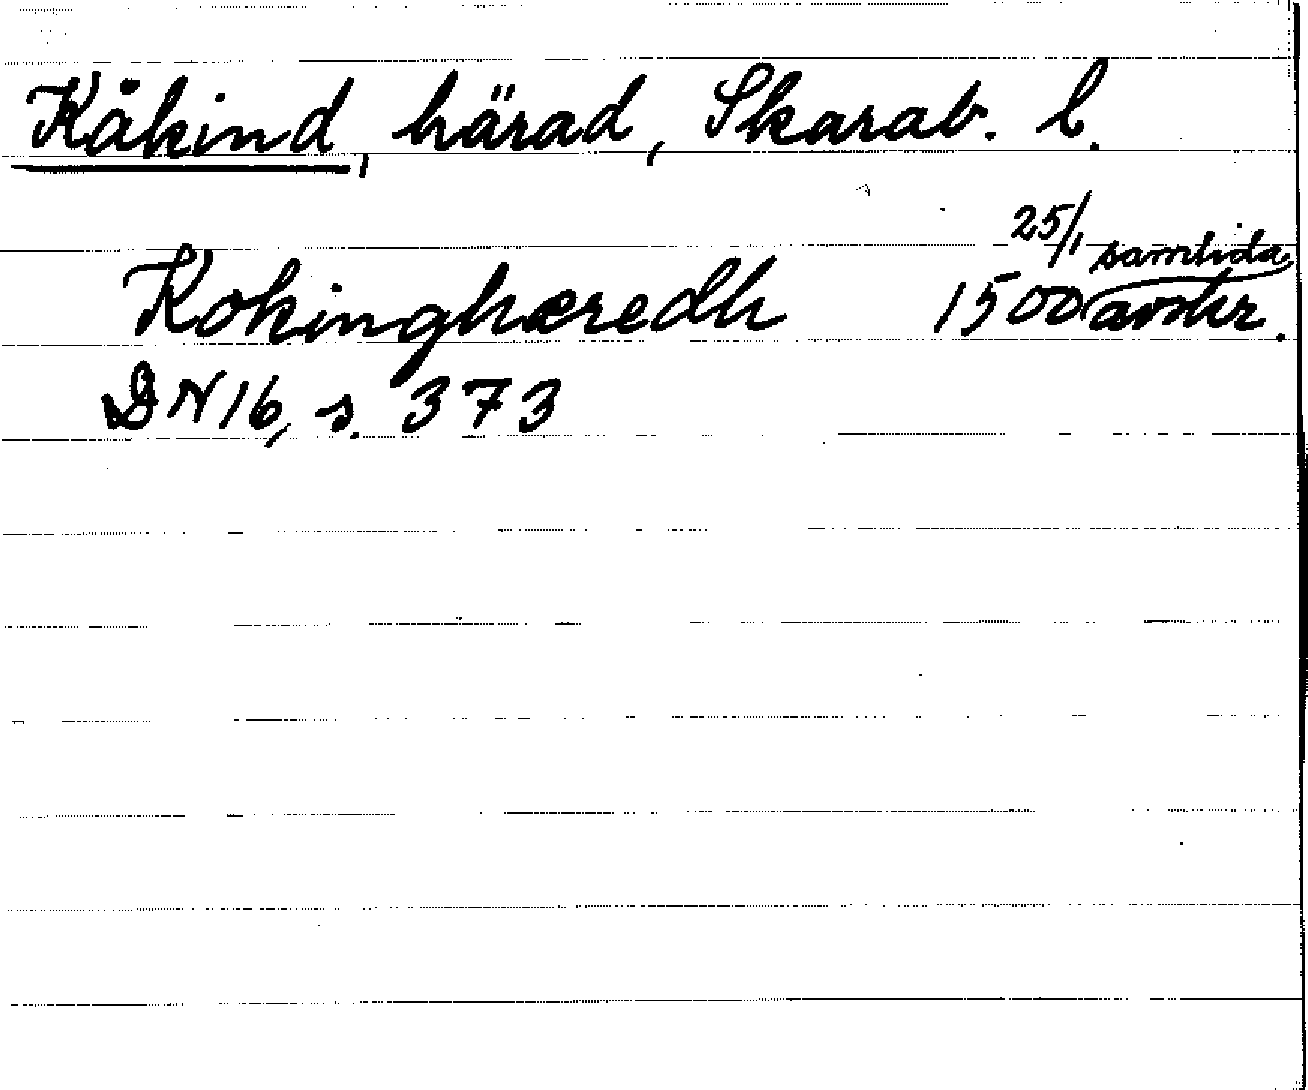 Kåkind, härad, Skarab. l.
Kokinghæredh 25/1 1500 samtida avskr.
DN 16, s. 373